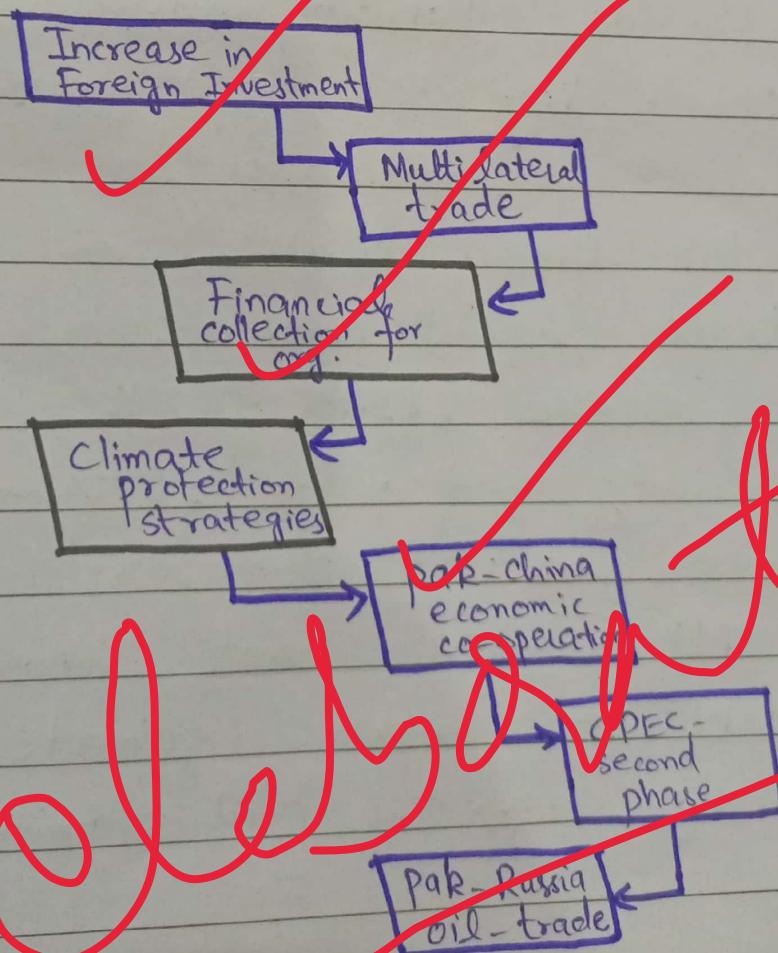 Increase in
Foreign Investment
Multilateral
trade
Financial
collection for
org.
Climate
protection
strategies
Pak-China
economic
co-operation
CPEC-
second
phase
Pak-Russia
oil-trade